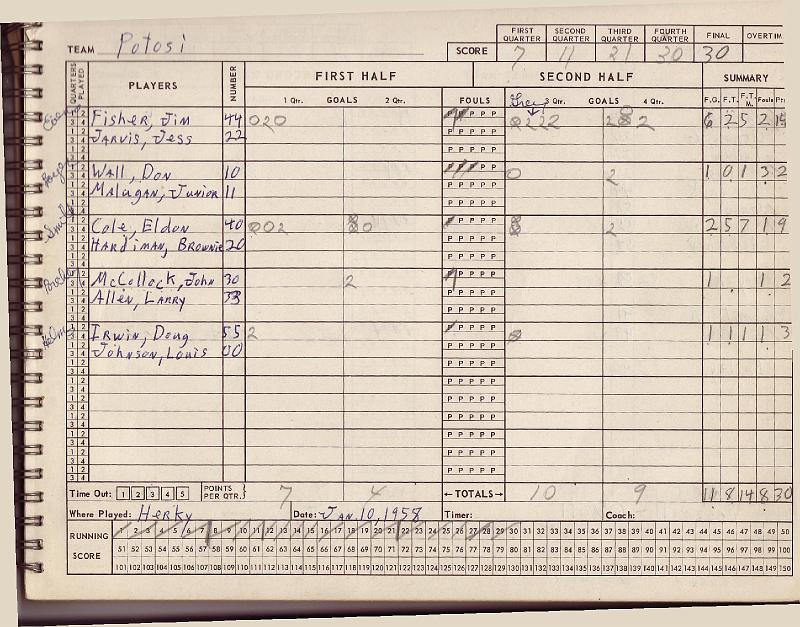 TEAM Potosi
SCORE
FIRST QUARTER SECOND QUARTER THIRD QUARTER FOURTH QUARTER FINAL OVERTIM
7 11 21 30 30
QUARTERS PLAYED PLAYERS NUMBER FIRST HALF SECOND HALF SUMMARY
1 Qtr. GOALS 2 Qtr. FOULS 3 Qtr. GOALS 4 Qtr. F.G. F.T. F.T. M. Fouls
Fisher, Jim 44 6 2 5 2
Jarvis, Jess 22
Wall, Don 10 1 0 1 3 2
Malugan, Junior 11
Cole, Eldon 40 2 5 7 1 9
Hardiman, Brownie 20
McCollock, John 30 2 1 1 2
Allen, Larry 33
Irwin, Doug 55 2 1 1 1 1 3
Johnson, Louis 00
Time Out: 1 2 3 4 5 POINTS PER QTR. 7 4 ←TOTALS→ 10 9 11 8 14 8 30
Where Played: Herky Date: Jan 10, 1958 Timer: Coach:
RUNNING SCORE
1 2 3 4 5 6 7 8 9 10 11 12 13 14 15 16 17 18 19 20 21 22 23 24 25 26 27 28 29 30 31 32 33 34 35 36 37 38 39 40 41 42 43 44 45 46 47 48 49 50
51 52 53 54 55 56 57 58 59 60 61 62 63 64 65 66 67 68 69 70 71 72 73 74 75 76 77 78 79 80 81 82 83 84 85 86 87 88 89 90 91 92 93 94 95 96 97 98 99 100
101 102 103 104 105 106 107 108 109 110 111 112 113 114 115 116 117 118 119 120 121 122 123 124 125 126 127 128 129 130 131 132 133 134 135 136 137 138 139 140 141 142 143 144 145 146 147 148 149 150